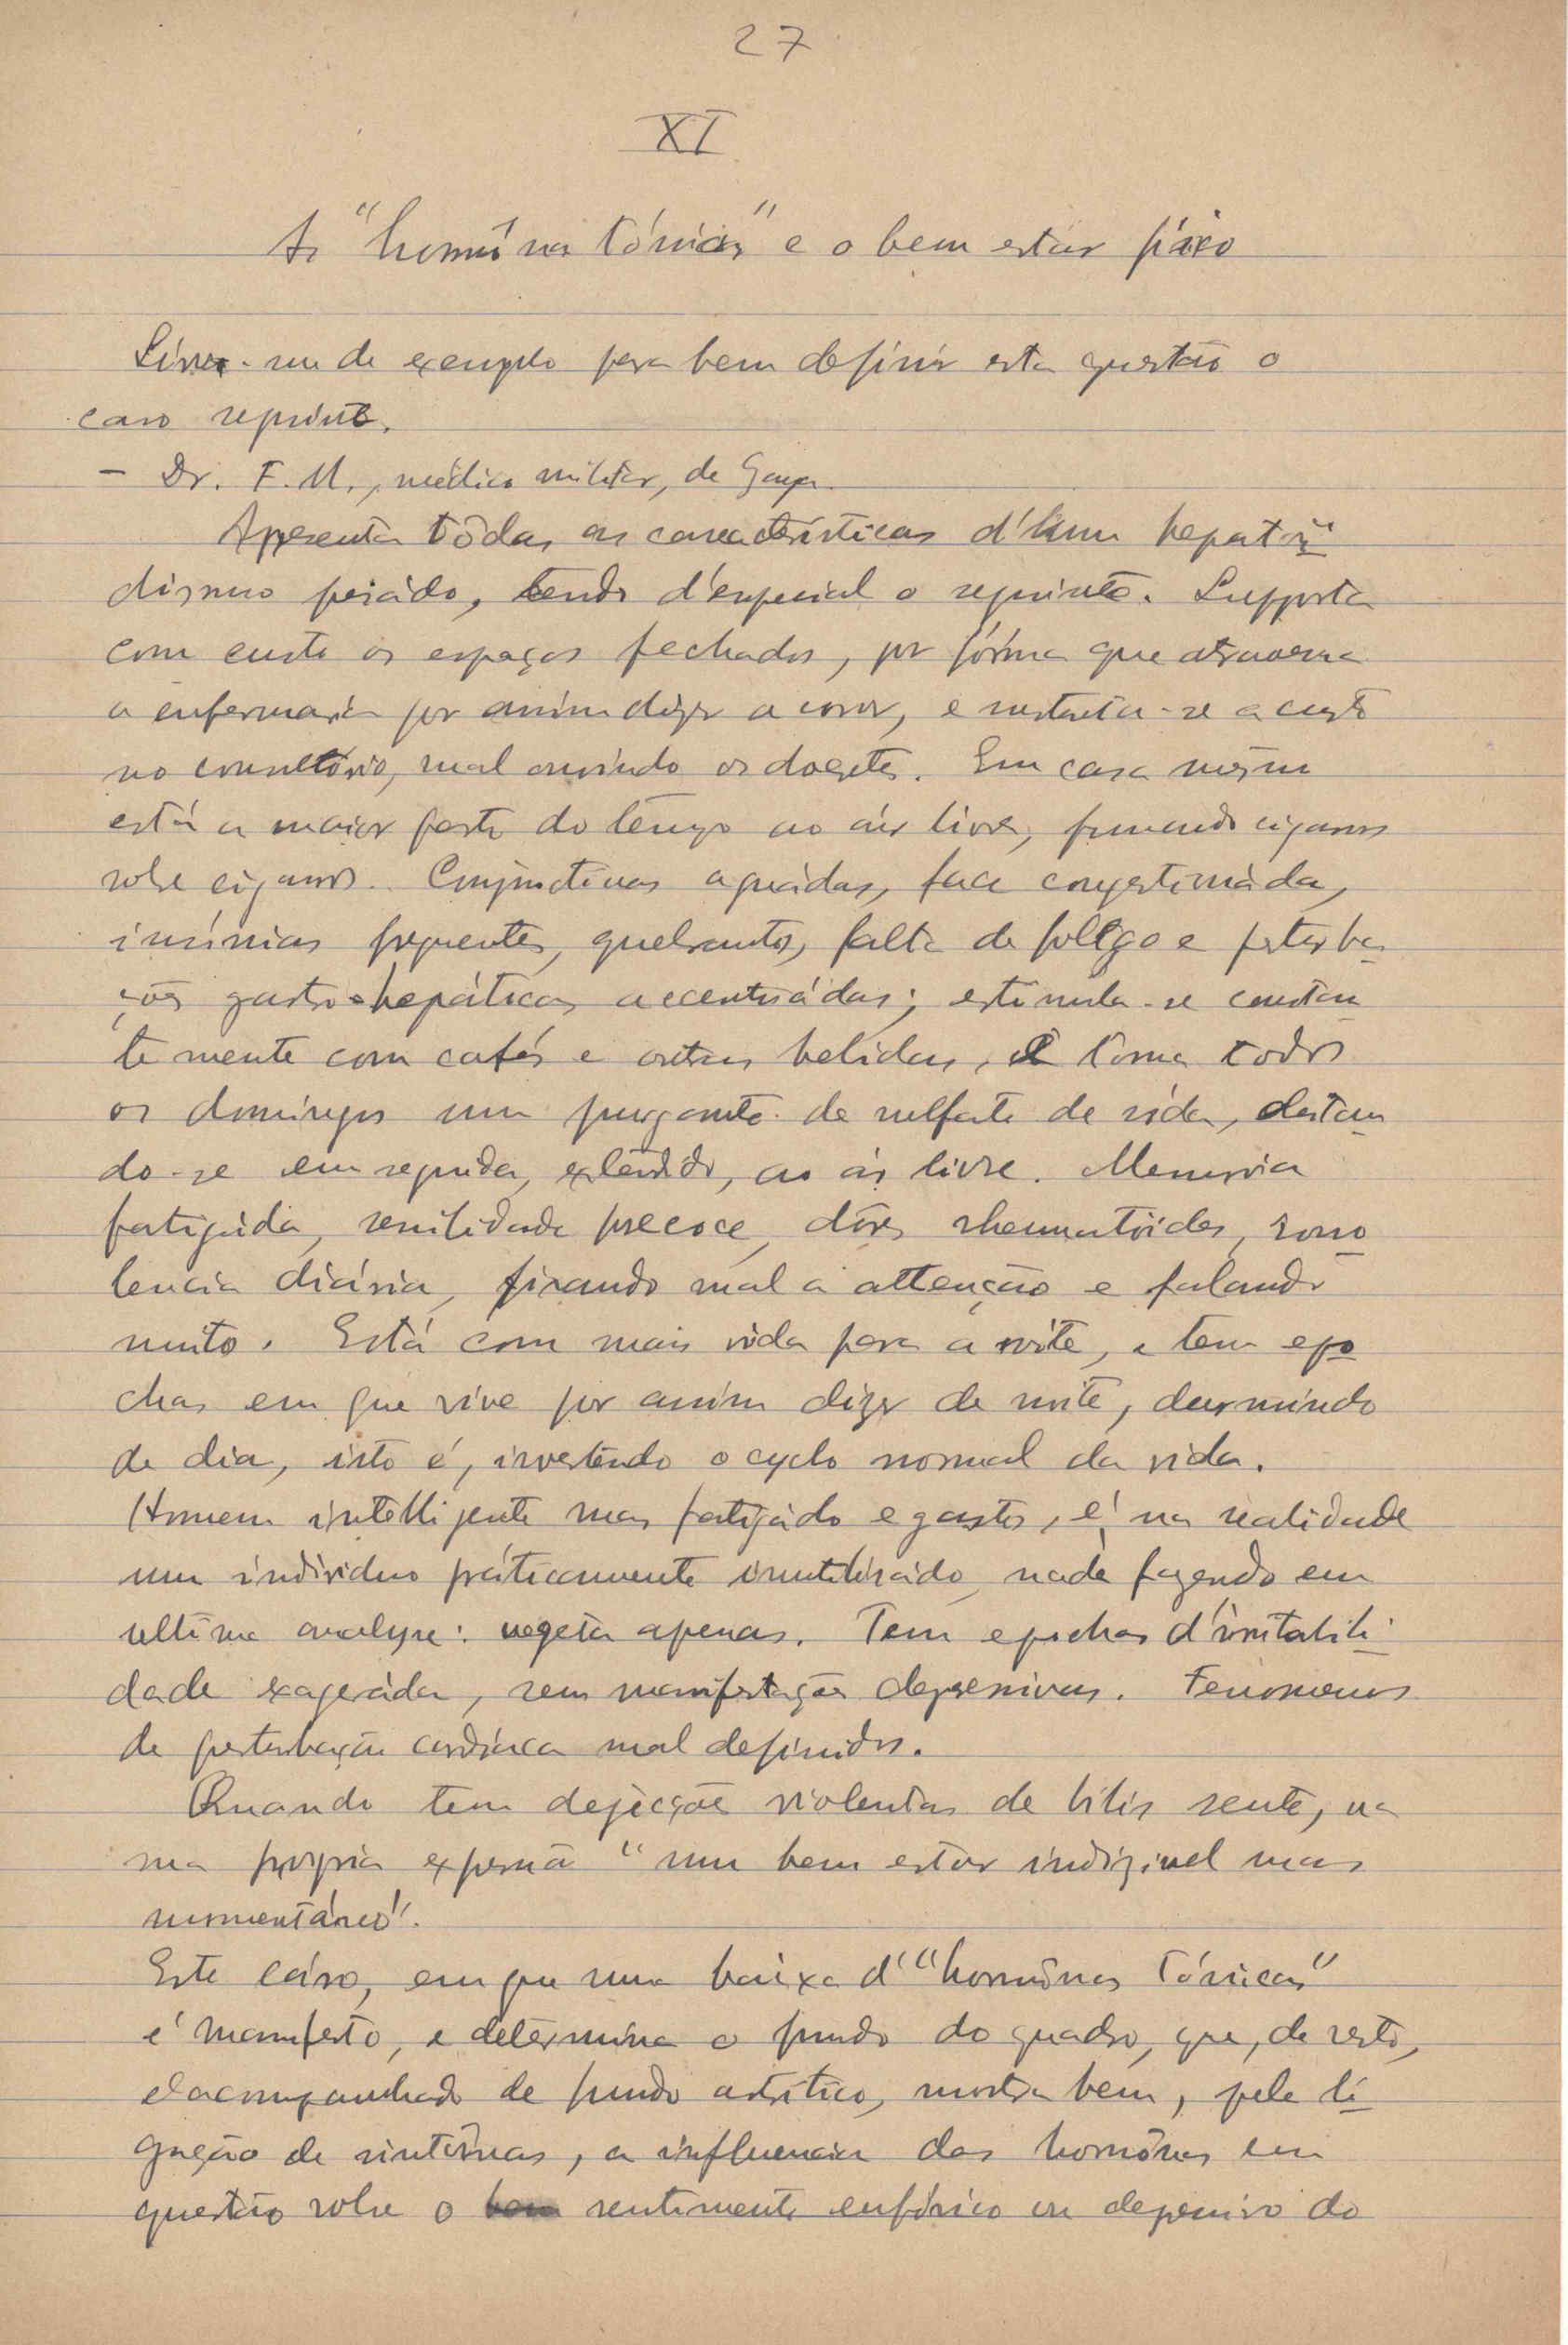 27
XI
As "hormônas tónicas" e o bem estar físico
Sirva-me de exemplo para bem definir esta questão o
caso seguinte.
— Dr. F. M., médico militar, de Gaya.
Apresenta tôdas as características d'hum hepatói
dismo pesádo, tendo d'especial o seguinte. Supporta
com custo os espaços fechados, por fórma que atravessa
a enfermaria por assim dizer a correr, e sustenta-se a custo
no consultório, mal ouvindo os doentes. Em casa mesmo
está a maior parte do tempo ao ár livre, fumando cigarros
sobre cigarros. Conjunctivas aguádas, face congestionáda,
insónias frequentes, quebrantos, falta de folêgo e perturba
ções gastro-hepáticas accentuádas; estimula-se constan
temente com cafés e outras bebidas, e toma todos
os domingos um purgante de sulfato de sóda, deitan
do-se em seguida, extendido, ao ár livre. Memoria
fatigáda, senilidade precoce, dôres rheumatóides, sono
lencia diária, fixando mal a attenção e falando
muito. Está com mais vida para a noite, e tem epo
chas em que vive por assim dizer de noite, durmindo
de dia, isto é, invertendo o cyclo normal da vida.
Homem intelligente mas fatigádo e gasto, é na realidade
um individuo práticamente inutilizádo, nada fazendo em
ultima analyse: vegeta apenas. Tem epochas d'irritabili
dade exageráda, sem manifestações depressivas. Fenomenos
de perturbação cardíaca mal definidos.
Quando tem dejecções violentas de bílis sente, na
sua propria expressão "um bem estar indizivel mas
momentáneo".
Este cáso, em que uma baixa d'"hormônas tónicas"
é manifesto, e determina o fundo do quadro, que, de resto,
é acompanhado de fundo artrítico, mostra bem, pela li
gação de sintômas, a influencia das hormônas em
questão sobre o sentimento eufórico ou depressivo do